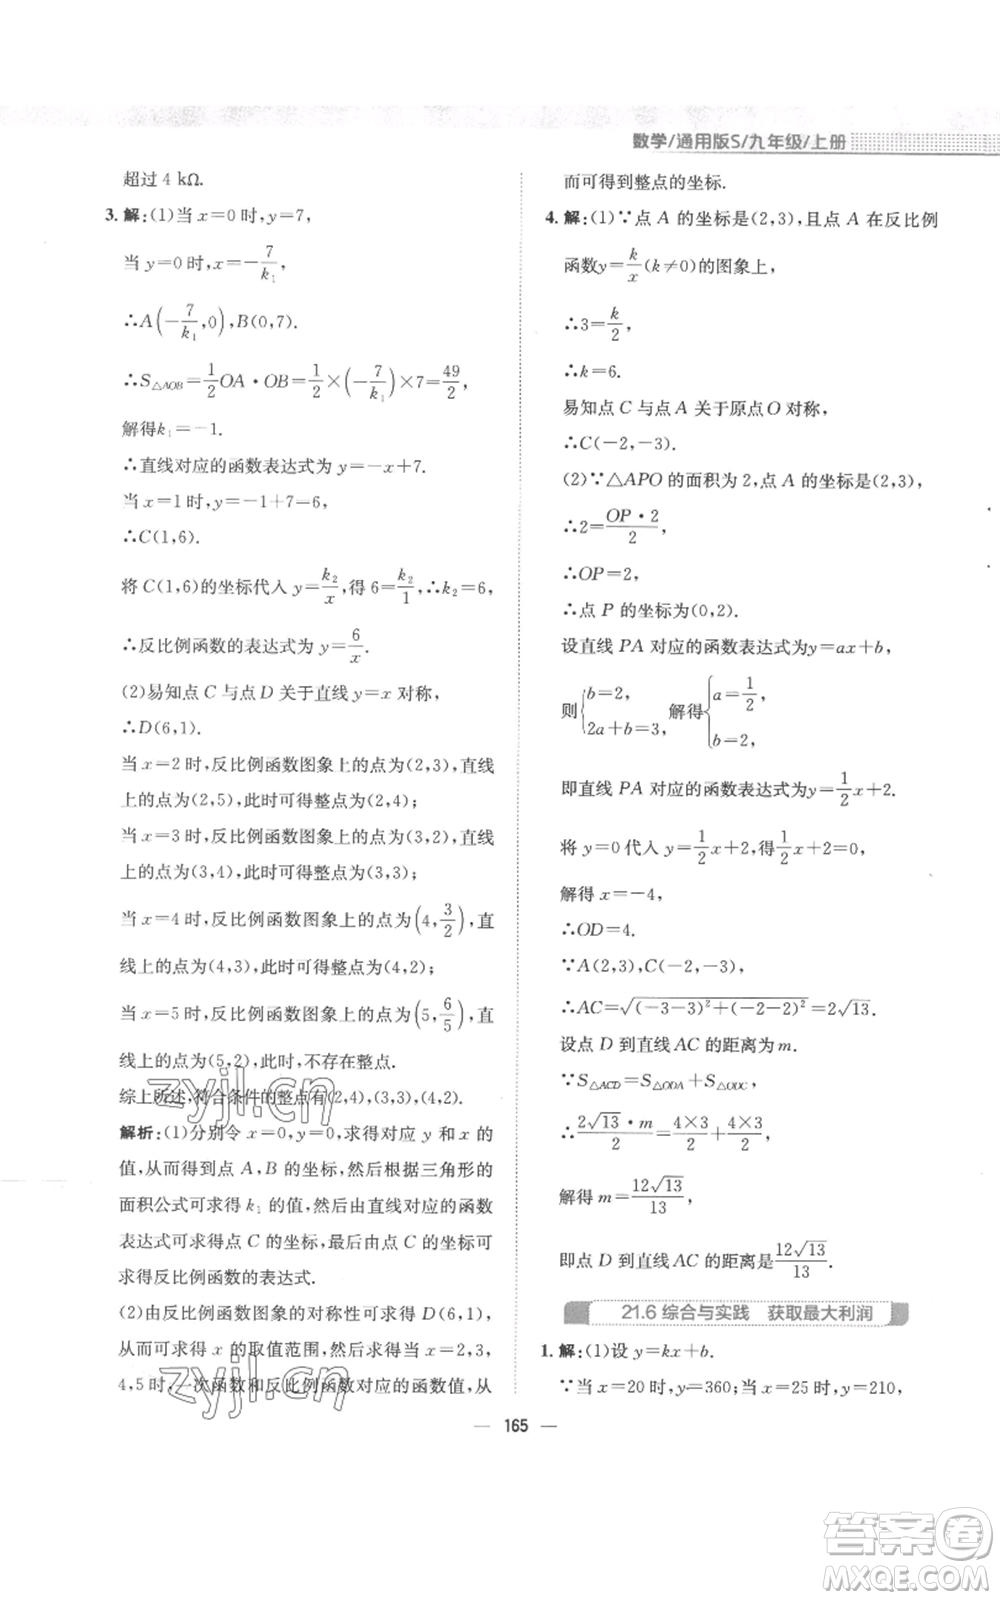 数学/通用版S/九年级/上册
超过 4 kΩ.
3. 解:(1)当 x=0 时,y=7,
当 y=0 时,x=-7/k₁,
∴A(-7/k₁,0),B(0,7).
∴S△AOB=1/2 OA·OB=1/2×(-7/k₁)×7=49/2,
解得k₁=-1.
∴直线对应的函数表达式为 y=-x+7.
当 x=1 时,y=-1+7=6,
∴C(1,6).
将 C(1,6)的坐标代入 y=k₂/x,得 6=k₂/1,∴k₂=6,
∴反比例函数的表达式为 y=6/x.
(2)易知点 C 与点 D 关于直线 y=x 对称,
∴D(6,1).
当 x=2 时,反比例函数图象上的点为(2,3),直线
上的点为(2,5),此时可得整点为(2,4);
当 x=3 时,反比例函数图象上的点为(3,2),直线
上的点为(3,4),此时可得整点为(3,3);
当 x=4 时,反比例函数图象上的点为(4,3/2),直
线上的点为(4,3),此时可得整点为(4,2);
当 x=5 时,反比例函数图象上的点为(5,6/5),直
线上的点为(5,2),此时,不存在整点.
综上所述,符合条件的整点有(2,4),(3,3),(4,2).
解析:(1)分别令 x=0,y=0,求得对应 y 和 x 的
值,从而得到点 A,B 的坐标,然后根据三角形的
面积公式可求得 k₁ 的值,然后由直线对应的函数
表达式可求得点 C 的坐标,最后由点 C 的坐标可
求得反比例函数的表达式.
(2)由反比例函数图象的对称性可求得 D(6,1),
从而可求得 x 的取值范围,然后求得当 x=2,3,
4,5时,一次函数和反比例函数对应的函数值,从
而可得到整点的坐标.
4. 解:(1)∵点 A 的坐标是(2,3),且点 A 在反比例
函数y=k/x(k≠0)的图象上,
∴3=k/2,
∴k=6.
易知点 C 与点 A 关于原点 O 对称,
∴C(-2,-3).
(2)∵△APO 的面积为 2,点 A 的坐标是(2,3),
∴2=OP·2/2,
∴OP=2,
∴点 P 的坐标为(0,2).
设直线 PA 对应的函数表达式为y=ax+b,
则{b=2, 2a+b=3, 解得{a=1/2, b=2,
即直线 PA 对应的函数表达式为y=1/2x+2.
将 y=0代入 y=1/2x+2,得1/2x+2=0,
解得 x=-4,
∴OD=4.
∵A(2,3),C(-2,-3),
∴AC=√((-3-3)²+(-2-2)²)=2√13.
设点 D 到直线 AC 的距离为 m.
∵S△ACD=S△ODA+S△ODC,
∴2√13·m/2=4×3/2+4×3/2,
解得 m=12√13/13,
即点 D 到直线 AC 的距离是12√13/13.
21.6 综合与实践 获取最大利润
1. 解:(1)设 y=kx+b.
∵当 x=20 时,y=360;当 x=25 时,y=210,
— 165 —
zyjl.cn
zyjl.cn
答案圈
MXQE.COM